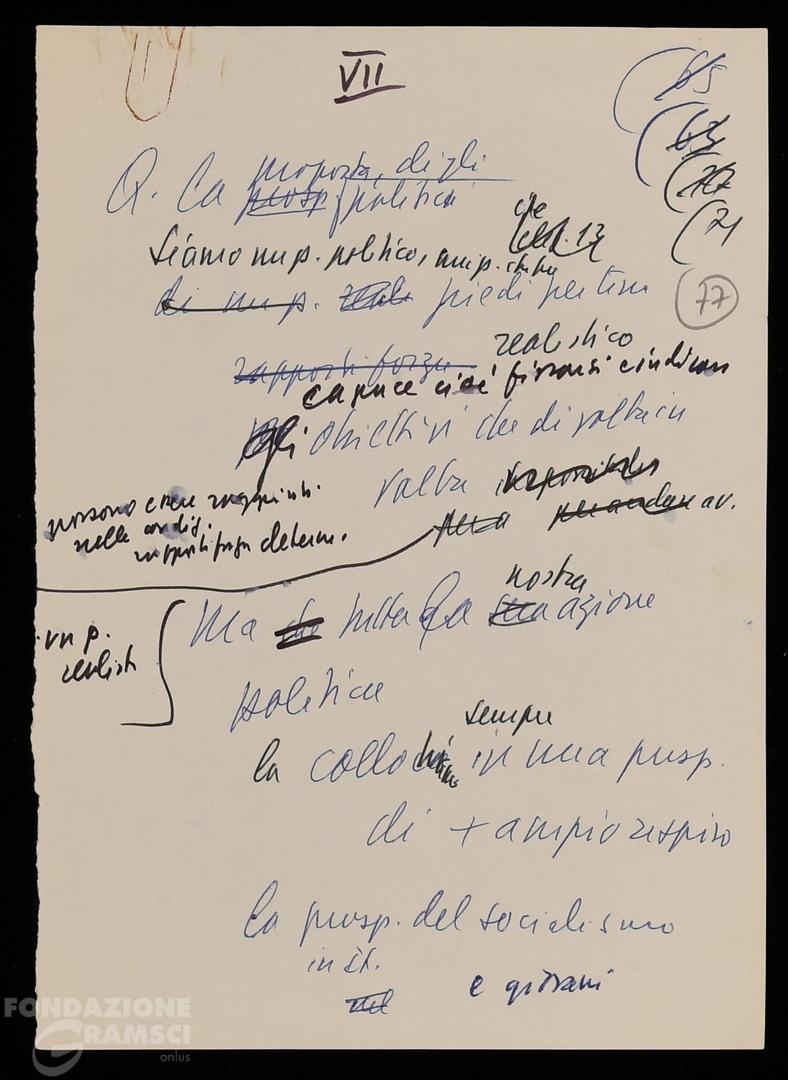 VII
65
63
71
77
Q. La proposta, di gli
prosp. politica
che
Siamo un p. politico, un p.
di un p. piedi per terra
realistico
rapporti forza
capace cioè fissarsi e indicare
gli obiettivi che di volta in
volta
possono essere raggiunti.
nelle condiz.
rapporti forza determ.
per andare av.
nostra
Ma tutta la azione
un p.
realista
politica
sempre
la collochiamo in una prosp.
di + ampio respiro
la prosp. del socialismo
in It.
nel e giovani
FONDAZIONE
GRAMSCI
onlus